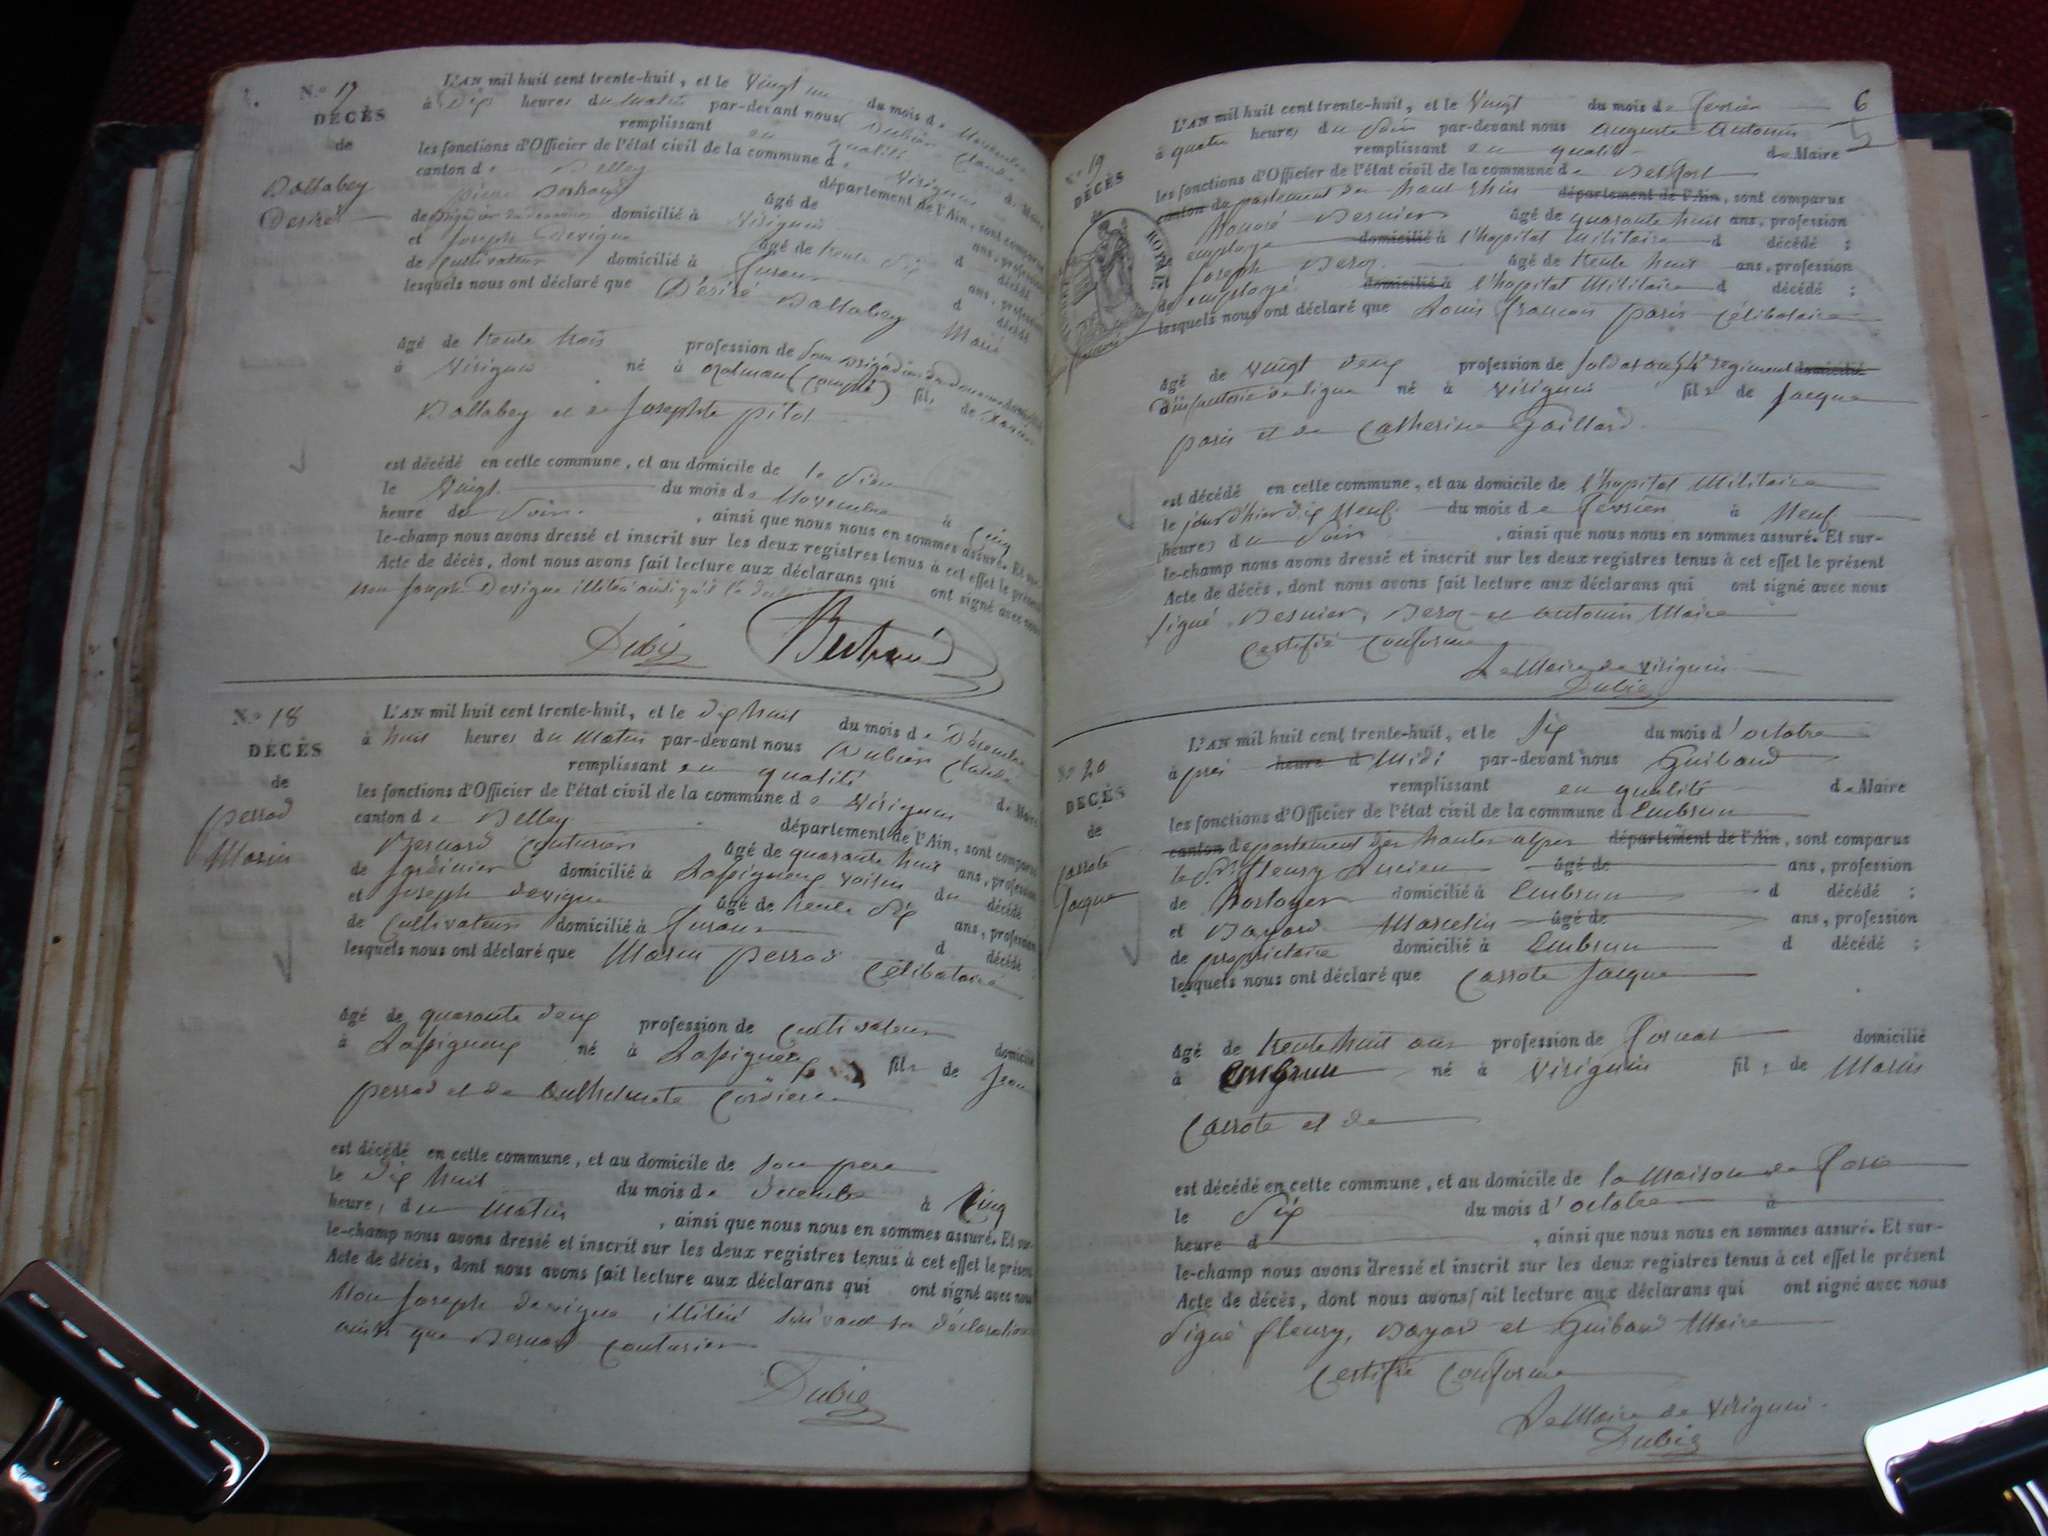 N.º 17
DÉCÈS
de
Ballabey
Désiré
L'AN mil huit cent trente-huit, et le vingt un du mois de Novembre
à dix heures du matin par-devant nous Dubien Claude
remplissant en qualité de Maire
les fonctions d'Officier de l'état civil de la commune de Virignin
canton de Belley département de l'Ain, sont comparus
pierre Bertrand âgé de ans, profession
de brigadier des douanes domicilié à Virignin d décédé ;
et Joseph Devigne âgé de trente six ans, profession
de Cultivateur domicilié à d décédé ;
lesquels nous ont déclaré que Désiré Ballabey Marié
âgé de trente trois profession de Sous Brigadier des douanes domicilié
à Virignin né à (Doubs) fils de
Ballabey et de Josephte pitot
est décédé en cette commune, et au domicile de le Sien
le Vingt du mois de Novembre à Cinq
heure du Soir , ainsi que nous nous en sommes assuré. Et sur-
le-champ nous avons dressé et inscrit sur les deux registres tenus à cet effet le présent
Acte de décès, dont nous avons fait lecture aux déclarans qui ont signé avec nous
non Joseph Devigne illitéré
Dubie Bertrand
N.º 18
DÉCÈS
de
perrod
Marin
L'AN mil huit cent trente-huit, et le dix huit du mois de Décembre
à huit heures du Matin par-devant nous Dubien Claude
remplissant en qualité de Maire
les fonctions d'Officier de l'état civil de la commune de Virignin
canton de Belley département de l'Ain, sont comparus
Bernard Couturier âgé de quarante huit ans, profession
de Jardinier domicilié à Lassigneux voisin du décédé ;
et Joseph devigne âgé de trente Six ans, profession
de Cultivateur domicilié à d décédé ;
lesquels nous ont déclaré que Marin perrod Célibataire
âgé de quarante deux profession de Cultivateur domicilié
à Lassigneux né à Lassigneux fils de Jean
perrod et de Anthelmete Cordier
est décédé en cette commune, et au domicile de Son pere
le dix huit du mois de décembre à Cinq
heures du Matin , ainsi que nous nous en sommes assuré. Et sur-
le-champ nous avons dressé et inscrit sur les deux registres tenus à cet effet le présent
Acte de décès, dont nous avons fait lecture aux déclarans qui ont signé avec nous
Non Joseph devigne illitéré Suivant sa déclaration
ainsi que Bernard Couturier
Dubie
6
N.º 19
DÉCÈS
de
L'AN mil huit cent trente-huit, et le Vingt du mois de fevrier
à quatre heures du Soir par-devant nous Auguste Antonin
remplissant en qualité de Maire
les fonctions d'Officier de l'état civil de la commune de Belfort
canton departement du haut Rhin département de l'Ain, sont comparus
Honoré Besnier âgé de quarante huit ans, profession
employe domicilié à l'hopital Militaire d décédé ;
Joseph âgé de trente huit ans, profession
de employé domicilié à l'hopital Militaire d décédé ;
lesquels nous ont déclaré que Louis françois paris Célibataire
âgé de vingt deux profession de Soldat au 54e regiment domicilié
d'infanterie de ligne né à Virignin fils de Jacque
paris et de Catherine Gaillard
est décédé en cette commune, et au domicile de l'hopital Militaire
le jour d'hier dix Neuf du mois de fevrier à Neuf
heures du Soir , ainsi que nous nous en sommes assuré. Et sur-
le-champ nous avons dressé et inscrit sur les deux registres tenus à cet effet le présent
Acte de décès, dont nous avons fait lecture aux déclarans qui ont signé avec nous
signé Besnier, et Antonin Maire
Certifié Conforme
Le Maire de Virignin
Dubie
N.º 20
DÉCÈS
de
Carrote
Jacque
L'AN mil huit cent trente-huit, et le Six du mois d'octobre
à près heure d Midi par-devant nous Guibaud
remplissant en qualité de Maire
les fonctions d'Officier de l'état civil de la commune d Embrun
canton departement des hautes alpes département de l'Ain, sont comparus
le Sr. fleury Lucien âgé de ans, profession
de horloger domicilié à Embrun d décédé ;
et Bayard Marcelin âgé de ans, profession
de propriétaire domicilié à Embrun d décédé ;
lesquels nous ont déclaré que Carrote Jacque
âgé de trente huit ans profession de forçat domicilié
à Embrun né à Virignin fils de Marin
Carrote et de
est décédé en cette commune, et au domicile de la Maison de force
le Six du mois d'octobre à
heure d , ainsi que nous nous en sommes assuré. Et sur-
le-champ nous avons dressé et inscrit sur les deux registres tenus à cet effet le présent
Acte de décès, dont nous avons fait lecture aux déclarans qui ont signé avec nous
Signé fleury, Bayard et Guibaud Maire
Certifié Conforme
Le Maire de Virignin
Dubie